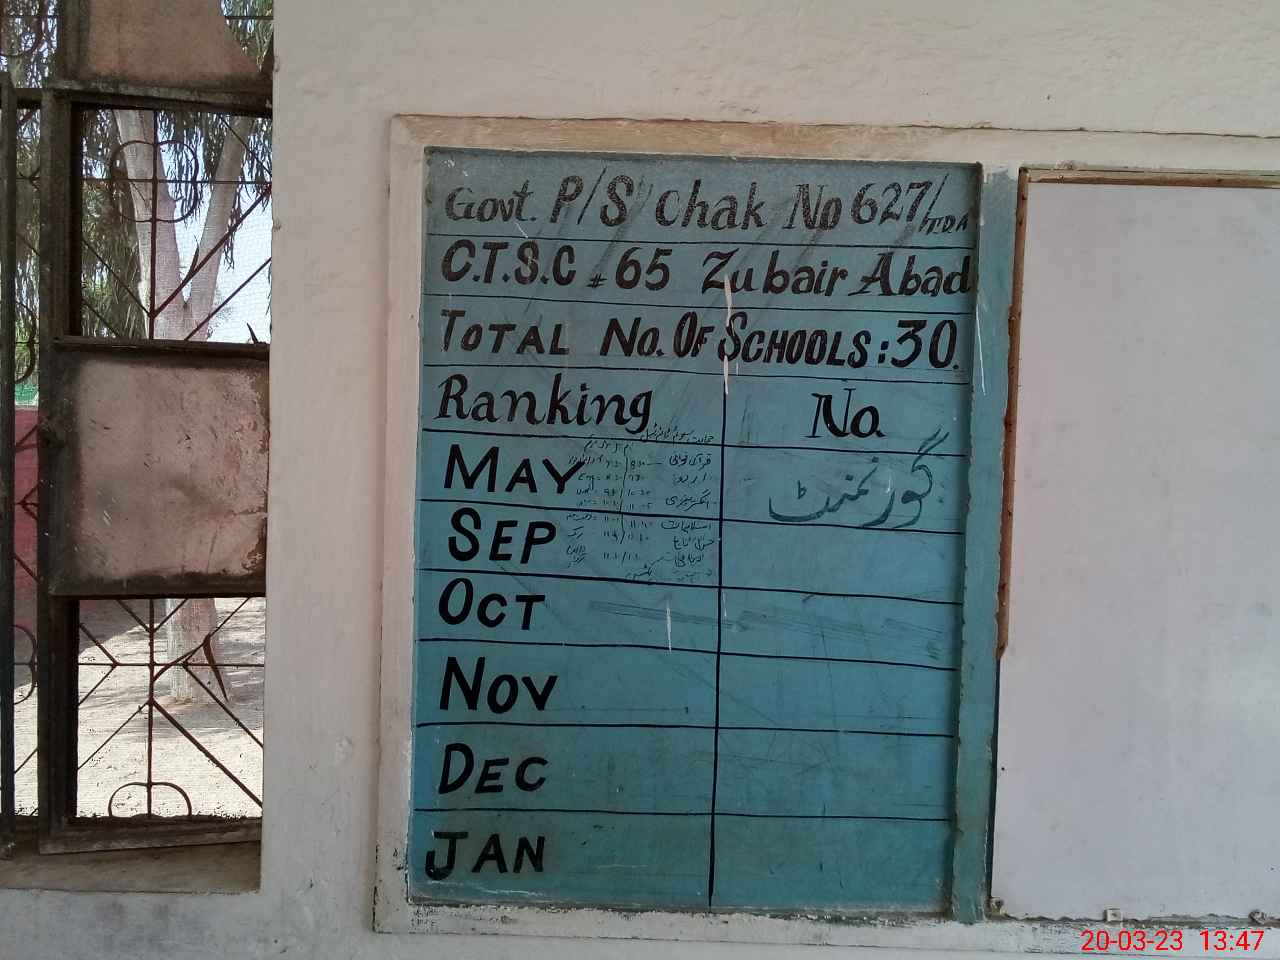 Govt. P/S Chak No 627/TDA
C.T.S.C # 65 Zubair Abad
TOTAL No. OF SCHOOLS: 30.
Ranking No.
MAY گورنمنٹ
SEP
OCT
NOV
DEC
JAN
قرآن خوانی
اردو
انگریزی
اسلامیات
20-03-23 13:47